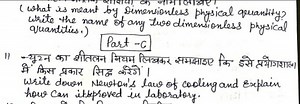 (what is meant by dimensionless physical quantity?
write the name of any two dimensionless physical
quantities.)
Part-C
11 - न्यूटन का शीतलन नियम लिखकर समझाइए कि इसे प्रयोगशाला
में किस प्रकार सिद्ध करेंगे।
write down Newton's law of cooling and explain
how can itsproved in laboratory.